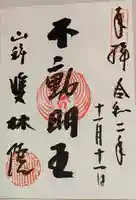 奉拝 令和二年
十一月十一日
不動明王
山科 雙林院